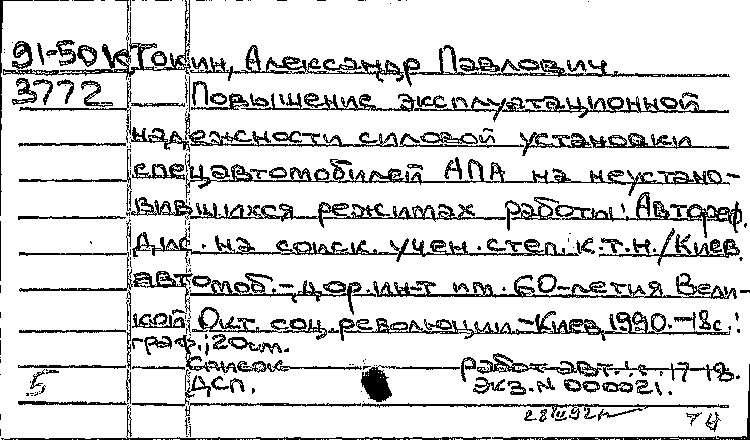 91-50к Токин, Александр Павлович.
3772 Повышение эксплуатационной
надежности силовой установки
спецавтомобилей АПА на неустано-
вившихся режимах работы: Автореф.
дис. на соиск. учен. степ. к.т.н. / Киев.
автомоб.-дор. ин-т им. 60-летия Вели-
кой Окт. соц. революции. -Киев, 1990. -18с.:
граф.; 20см.
Список работ авт.: с. 17-18.
5 ДСП. Экз. N 000021.